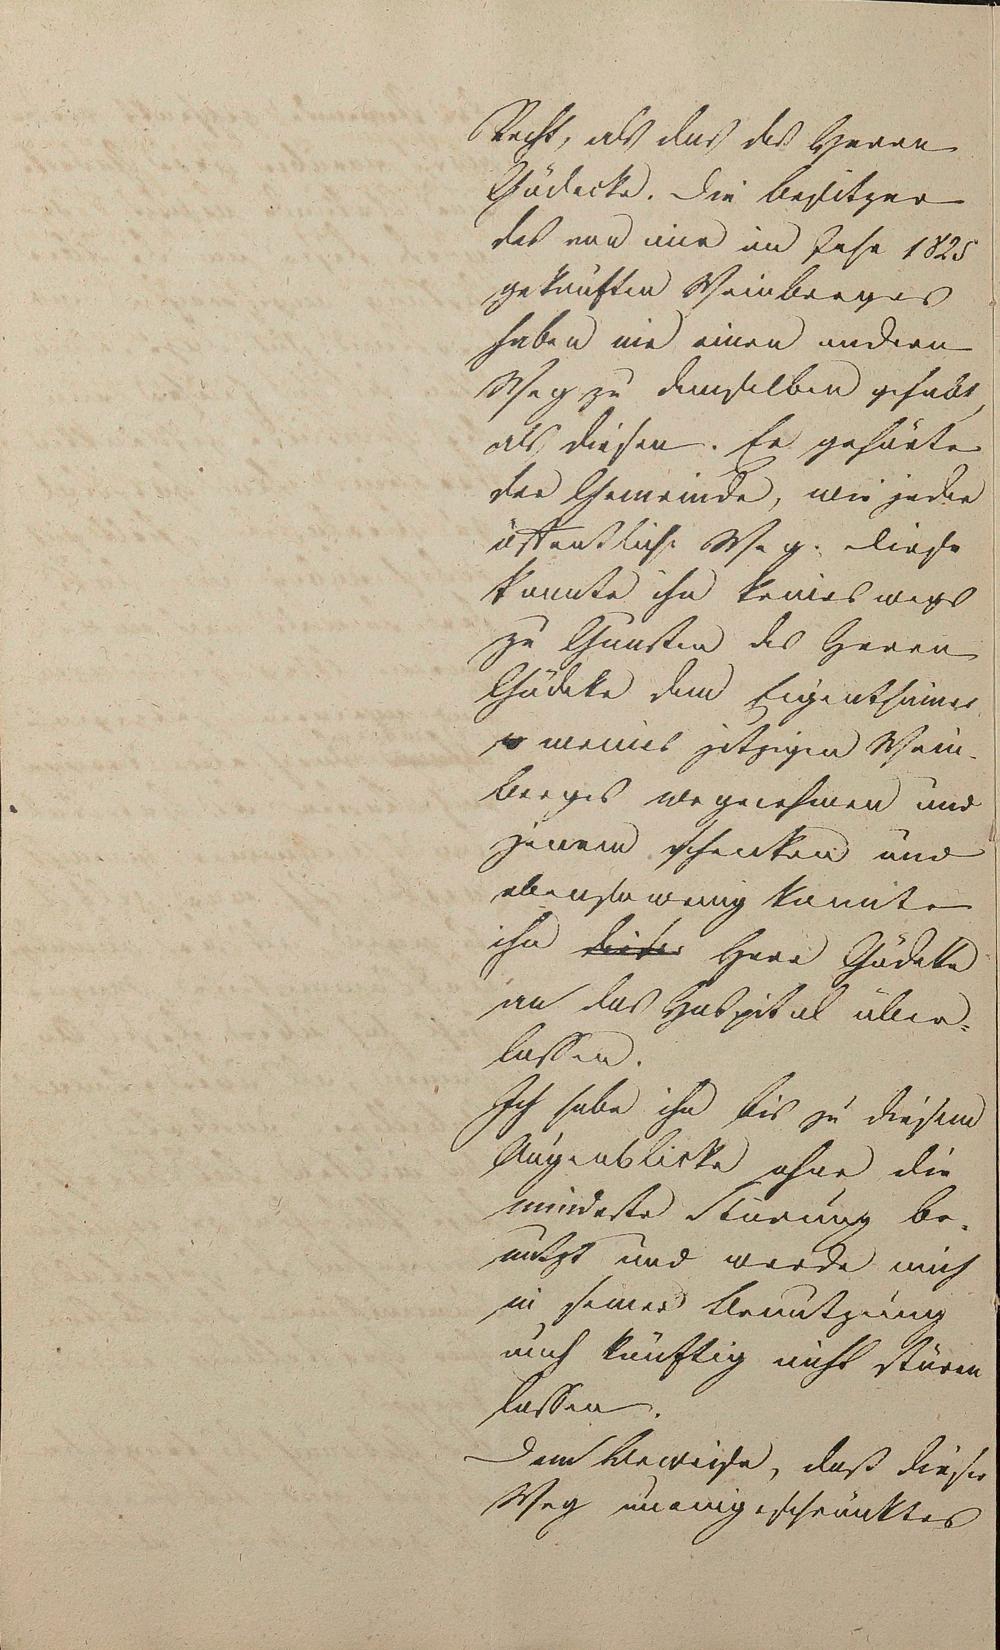 Recht, als das des Herrn
Gödecke. Die Besitzer
des von mir im Jahr 1825
gekauften Weinberges
haben nie einen andern
Weg zu demselben gehabt,
als diesen. Er gehörte
der Gemeinde, wie jeder
öffentliche Weg. Diese
konnte ihn keinesweges
zu Gunsten des Herrn
Gödeke dem Eigenthümer
meines jetzigen Wein-
berges wegnehmen und
jenem schenken und
ebensowenig konnte
ihn dieser Herr Gödeke
an das Hospital über-
lassen.
Ich habe ihn bis zu diesem
Augenblicke ohne die
mindeste Störung be-
nutzt und werde mich
in seiner Benutzung
auch künftig nicht stören
lassen.
Dem Beweise, daß dieser
Weg uneingeschränktes